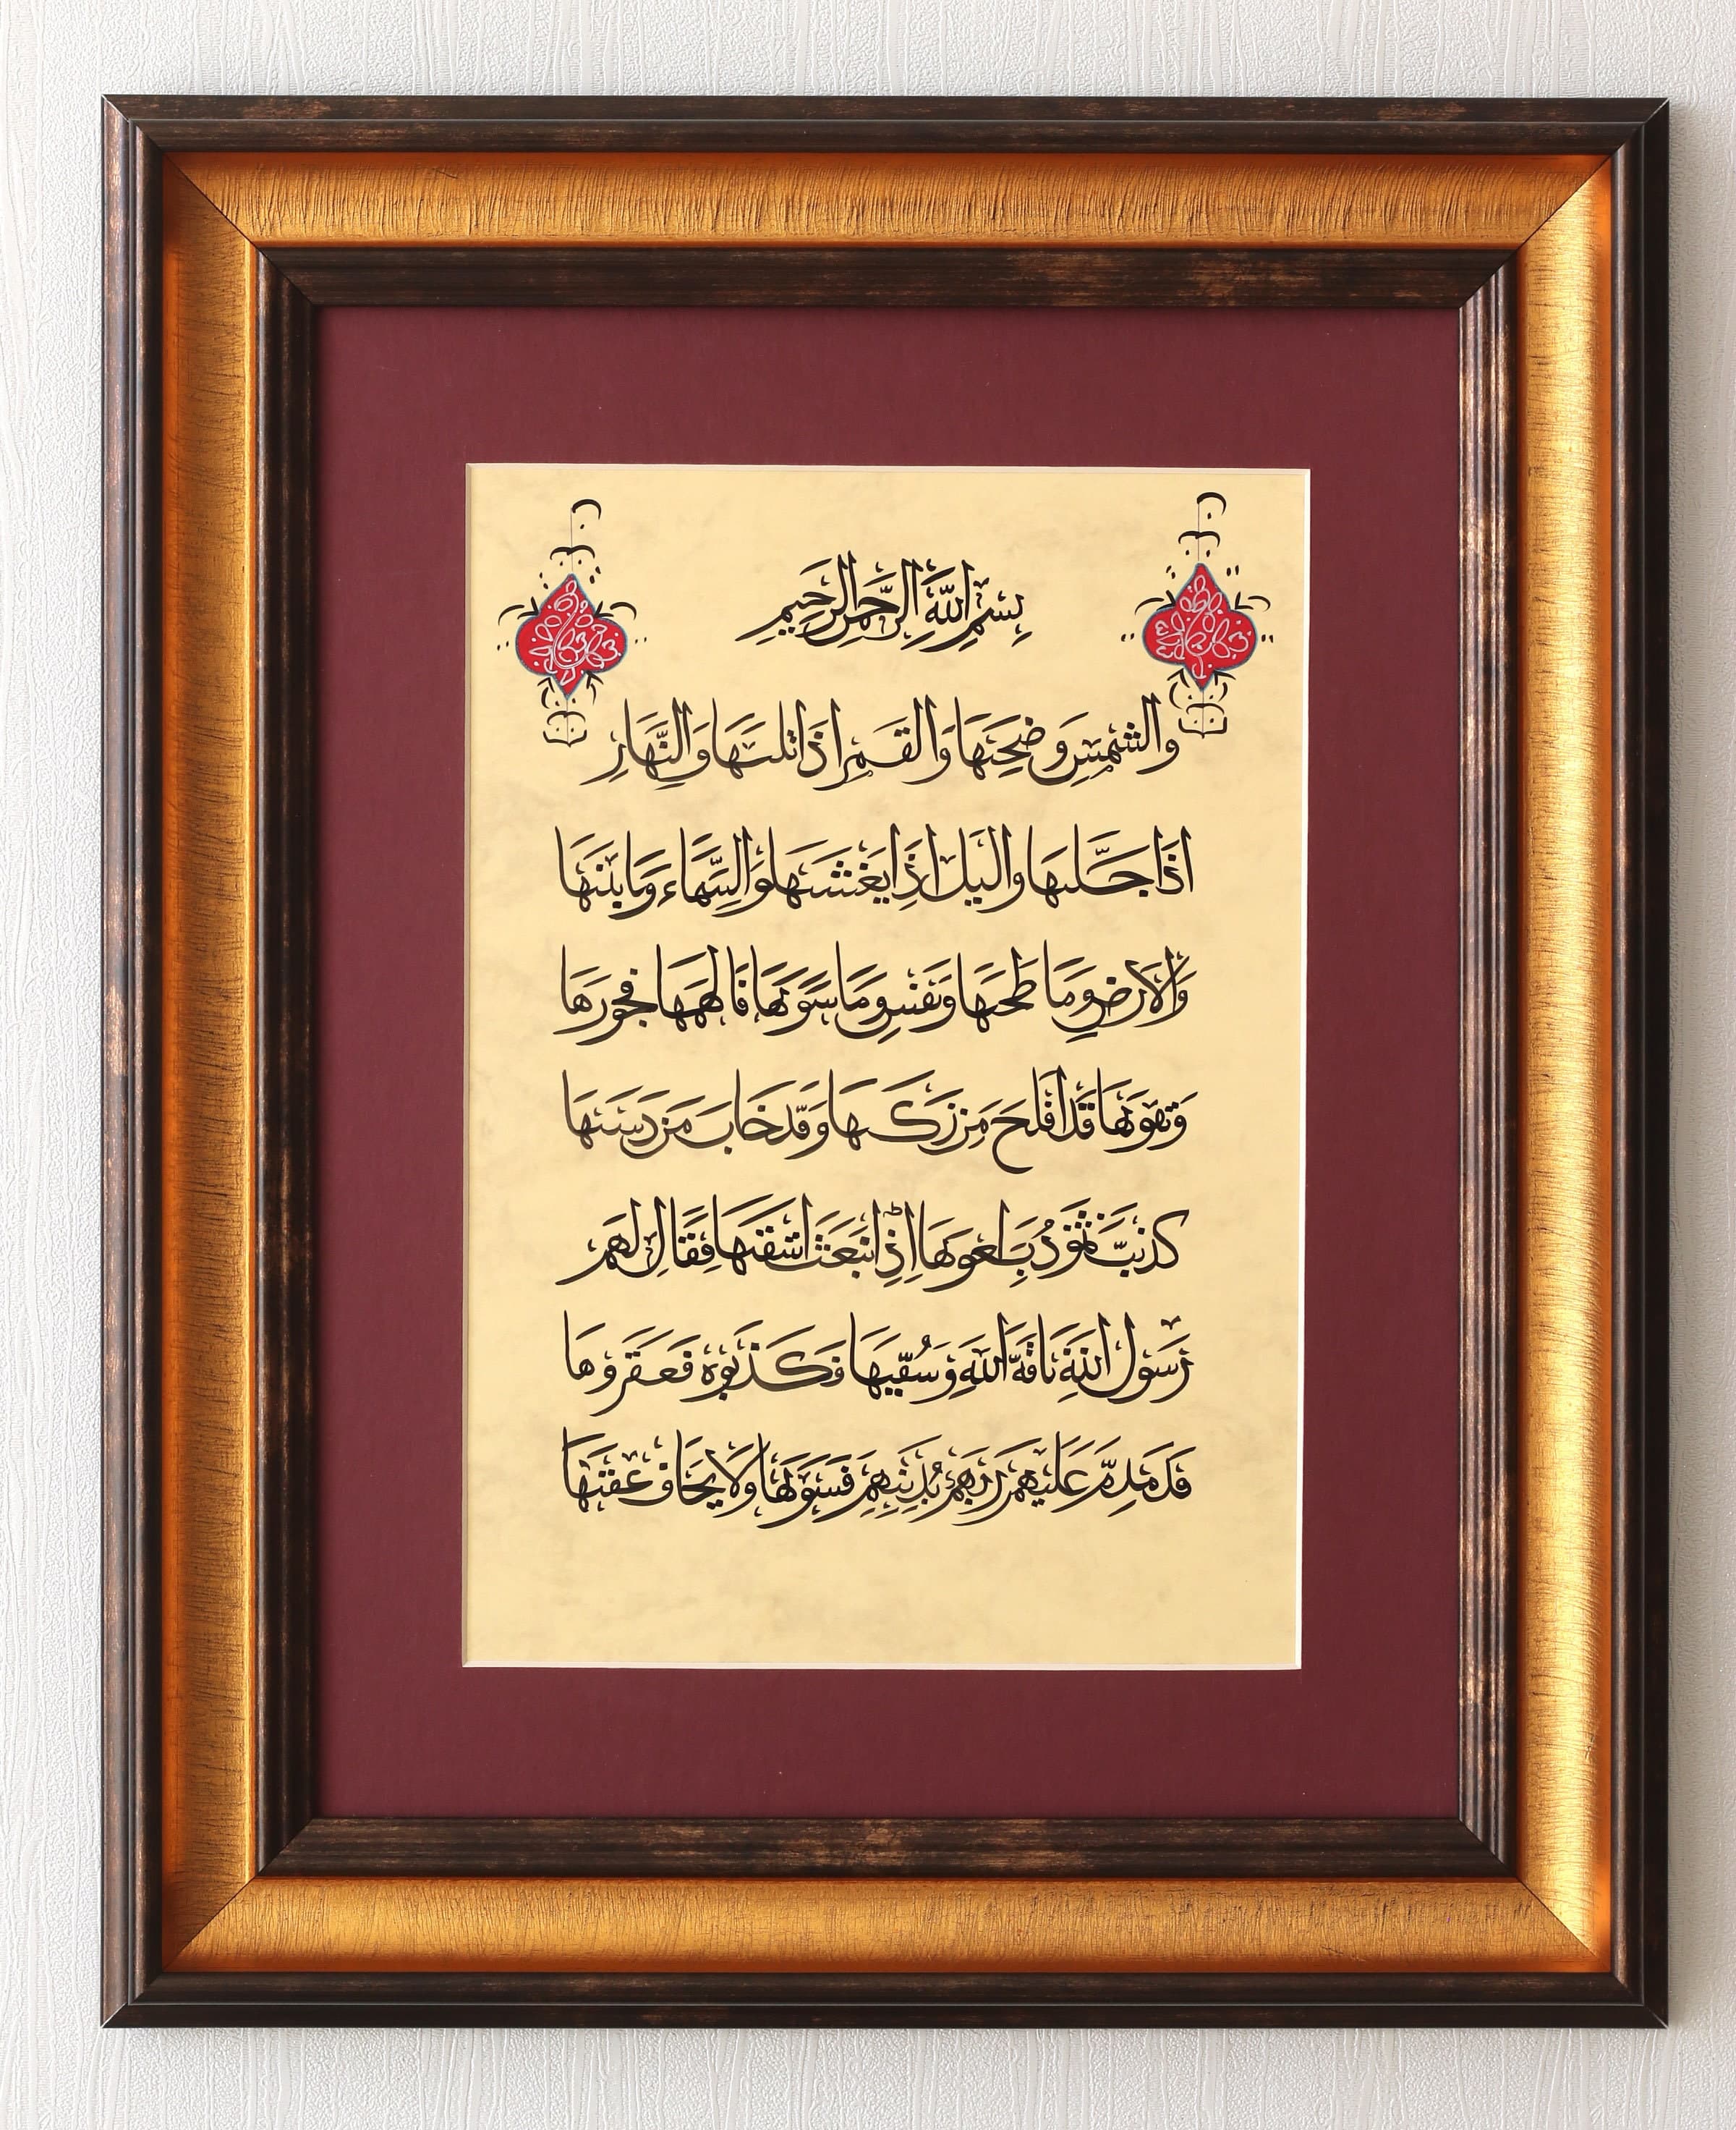 بسم الله الرحمن الرحيم
والشمس وضحىها والقمر اذا تلىها والنهار
اذا جلىها واليل اذا يغشىها والسماء وما بنىها
والارض وما طحىها ونفس وما سوىها فالهمها فجورها
وتقوىها قد افلح من زكىها وقد خاب من دسىها
كذبت ثمود بطغوىها اذ انبعث اشقىها فقال لهم
رسول الله ناقة الله وسقيىها فكذبوه فعقروها
فدمدم عليهم ربهم بذنبهم فسوىها ولا يخاف عقبىها